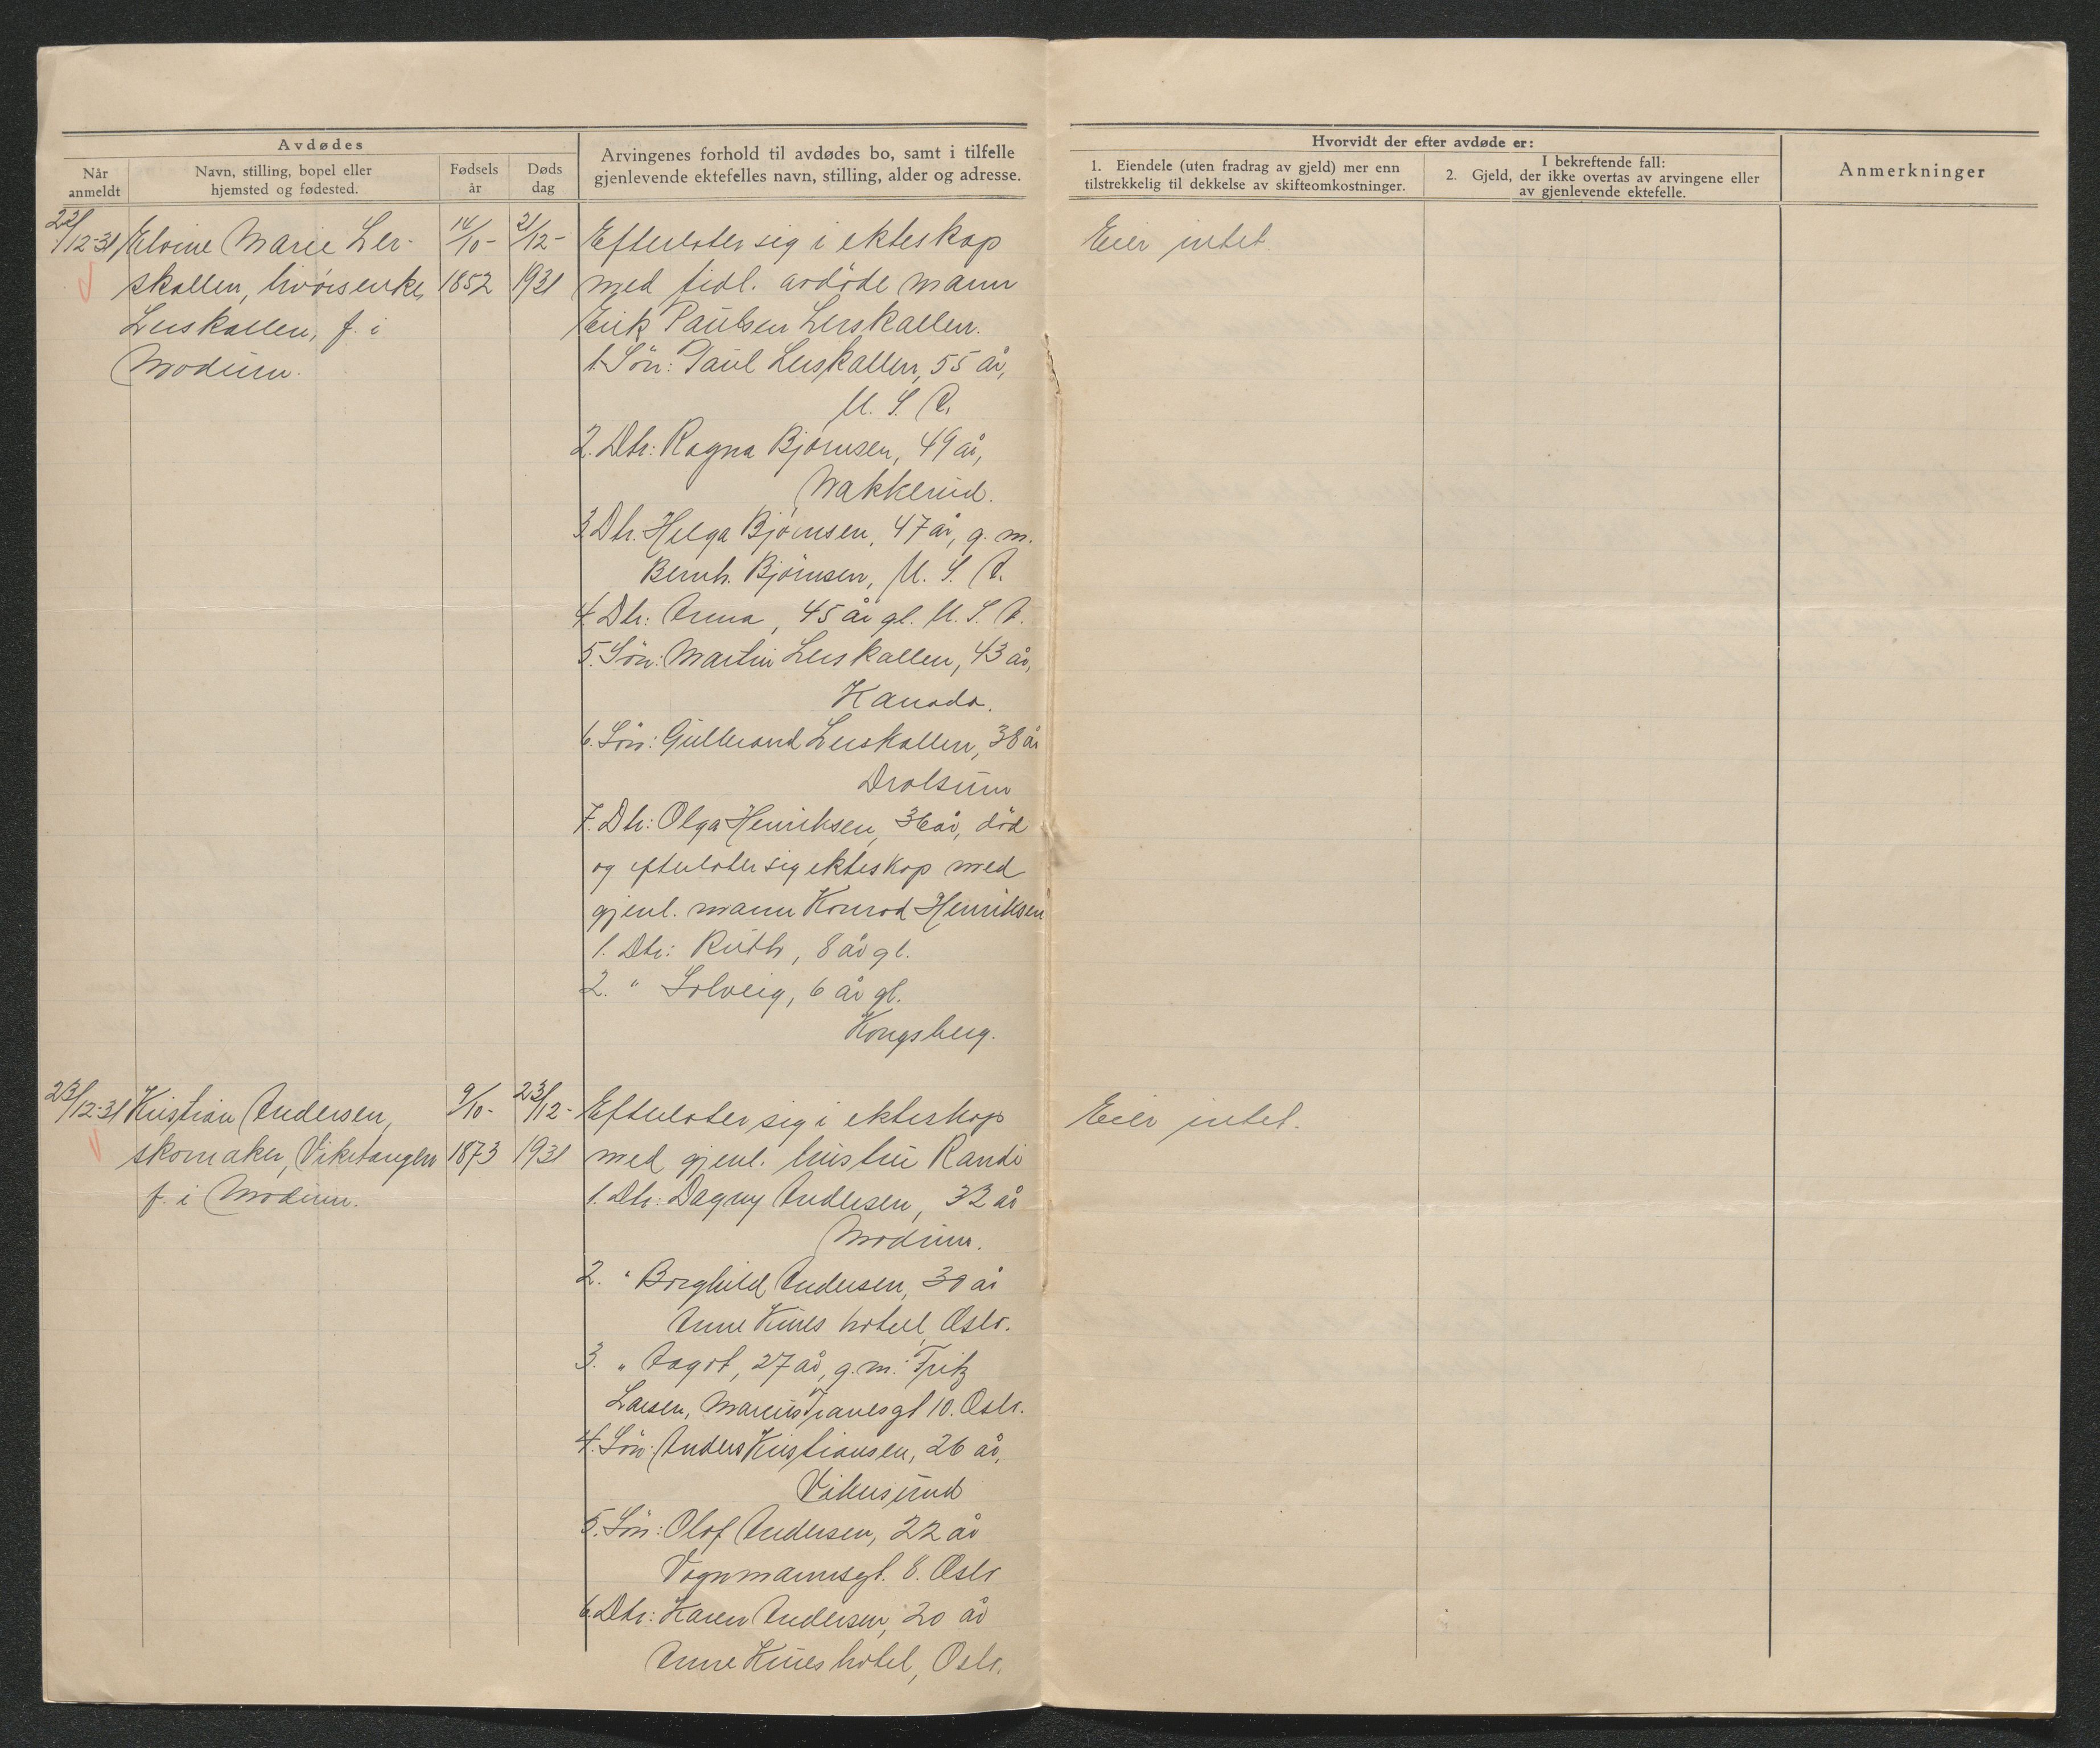 Avdødes
Når anmeldt
Navn, stilling, bopel eller hjemsted og fødested.
Fødsels år
Døds dag
Arvingenes forhold til avdødes bo, samt i tilfelle
gjenlevende ektefelles navn, stilling, alder og adresse.
Hvorvidt der efter avdøde er:
1. Eiendele (uten fradrag av gjeld) mer enn
tilstrekkelig til dekkelse av skifteomkostninger.
I bekreftende fall:
2. Gjeld, der ikke overtas av arvingene eller
av gjenlevende ektefelle.
Anmerkninger
22/12-31 Elvine Marie Ler-
skallen, livørsenke,
Lerskallen, f. i
Modum.
14/10-
1852
21/12-
1931
Efterlater sig i ekteskap
med tidl. avdöde mann
Erik Paulsen Lerskallen.
1. Sön: Paul Lerskallen, 55 år,
U. S. A.
2. Dtr: Ragna Bjørnsen, 49 år,
Nakkerud.
3. Dtr. Helga Bjørnsen, 47 år, g. m.
Bernh. Bjørnsen, U. S. A.
4. Dtr: Anna, 45 år gl. U. S. A.
5. Sön: Martin Lerskallen, 43 år,
Kanada.
6. Sön: Gulbrand Lerskallen, 38 år
Drolsum
7. Dtr: Olga Henriksen, 36 år, död
og efterlater sig ekteskap med
gjenl. mann Konrad Henriksen
1. Dtr: Ruth, 8 år gl.
2. " Solveig, 6 år gl.
Kongsberg.
Eier intet.
23/12-31 Kristian Andersen,
skomaker, Viketangen
f. i Modum.
9/10-
1873
23/12-
1931
Efterlater sig i ekteskap
med gjenl. hustru Randi
1. Dtr: Dagny Andersen, 32 år
Modum.
2. " Borghild Andersen, 30 år
Anne Kures hotel, Oslo.
3. " Aagot, 27 år, g. m. Fritz
Larsen, Marcus Tranesgt 10. Oslo.
4. Sön: Anders Kristiansen, 26 år,
Vikersund
5. Sön: Olaf Andersen, 22 år
Vognmannsgt. 8. Oslo
6. Dtr: Karen Andersen, 20 år
Anne Kures hotel, Oslo.
Eier intet.